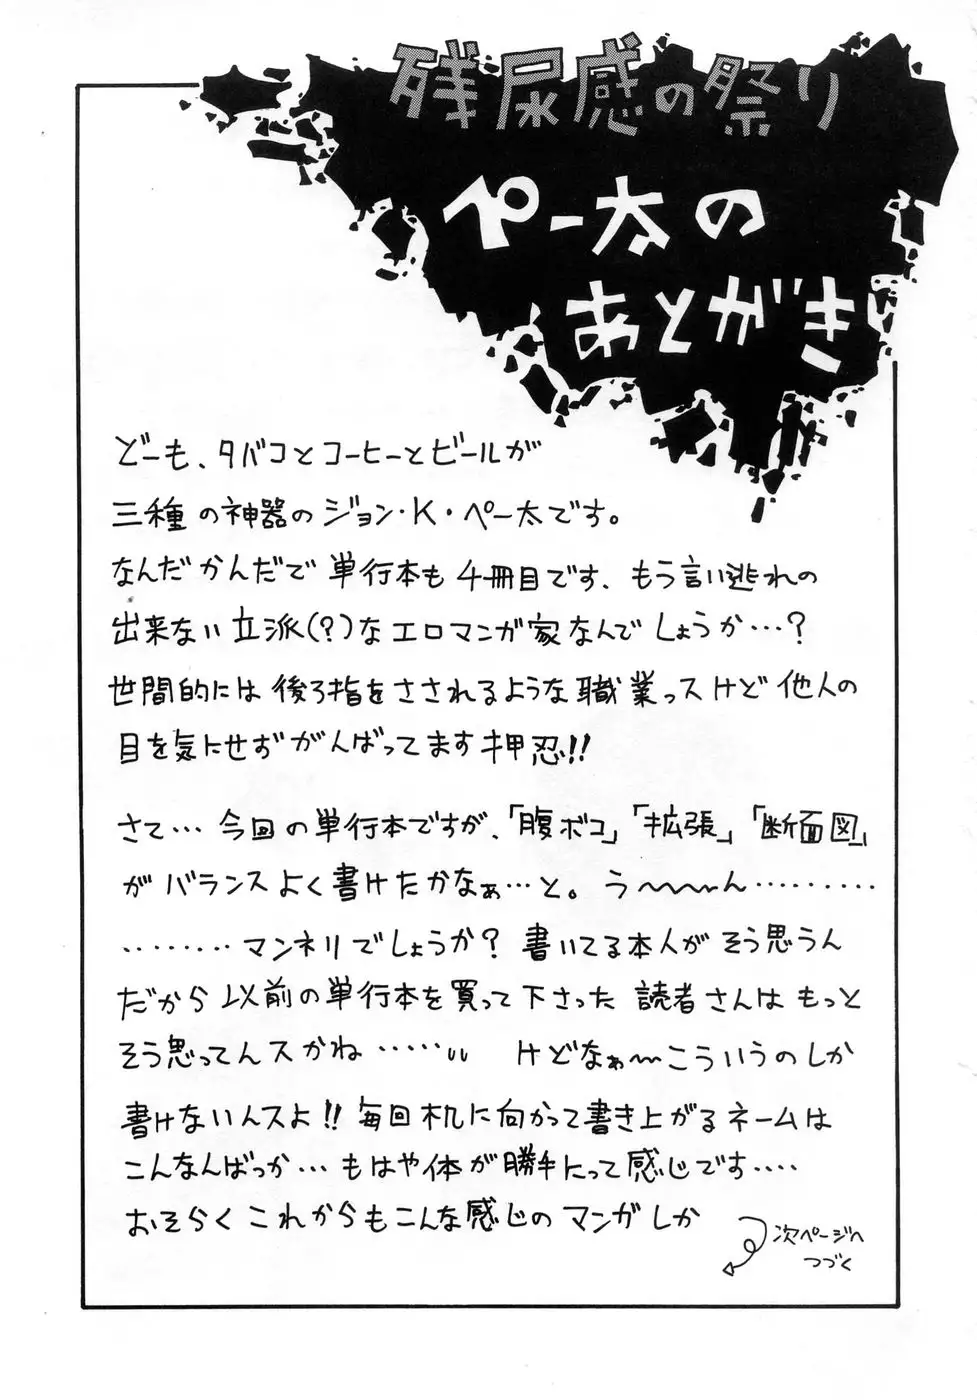 残尿感の祭り
ペー太の
あとがき
どーも、タバコとコーヒーとビールが
三種の神器のジョン・K・ペー太です。
なんだかんだで単行本も4冊目です、もう言い逃れの
出来ない立派(?)なエロマンガ家なんでしょうか…?
世間的には後ろ指をさされるような職業っスけど他人の
目を気にせずがんばってます押忍!!
さて…今回の単行本ですが、「腹ボコ」「拡張」「断面図」
がバランスよく書けたかなぁ…と。う〜〜〜ん………
………マンネリでしょうか?書いてる本人がそう思うん
だから以前の単行本を買って下さった読者さんはもっと
そう思ってんスかね……ιι けどなぁ〜こういうのしか
書けないんスよ!!毎回机に向かって書き上がるネームは
こんなんばっか…もはや体が勝手にって感じです‥‥
おそらくこれからもこんな感じのマンガしか
次ページへ
つづく